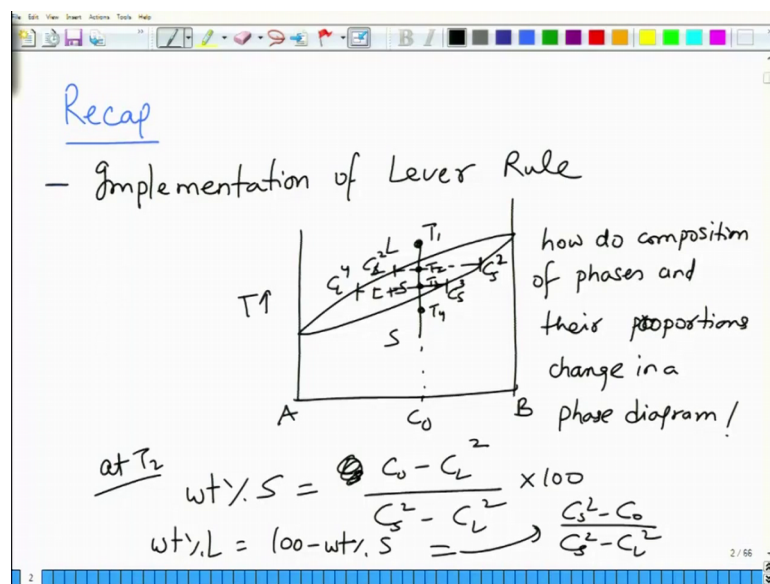 File Edit View Insert Actions Tools Help
B I
Recap
– Implementation of Lever Rule
T↑
T₁
L
C_L²
T₂
C_S²
C_L⁴
L+S
T₃
C_S³
T₄
S
A
C₀
B
how do composition
of phases and
their proportions
change in a
phase diagram!
at T₂
wt% S = (C₀ – C_L²) / (C_S² – C_L²) × 100
wt% L = 100 – wt% S = (C_S² – C₀) / (C_S² – C_L²)
2 / 66
2